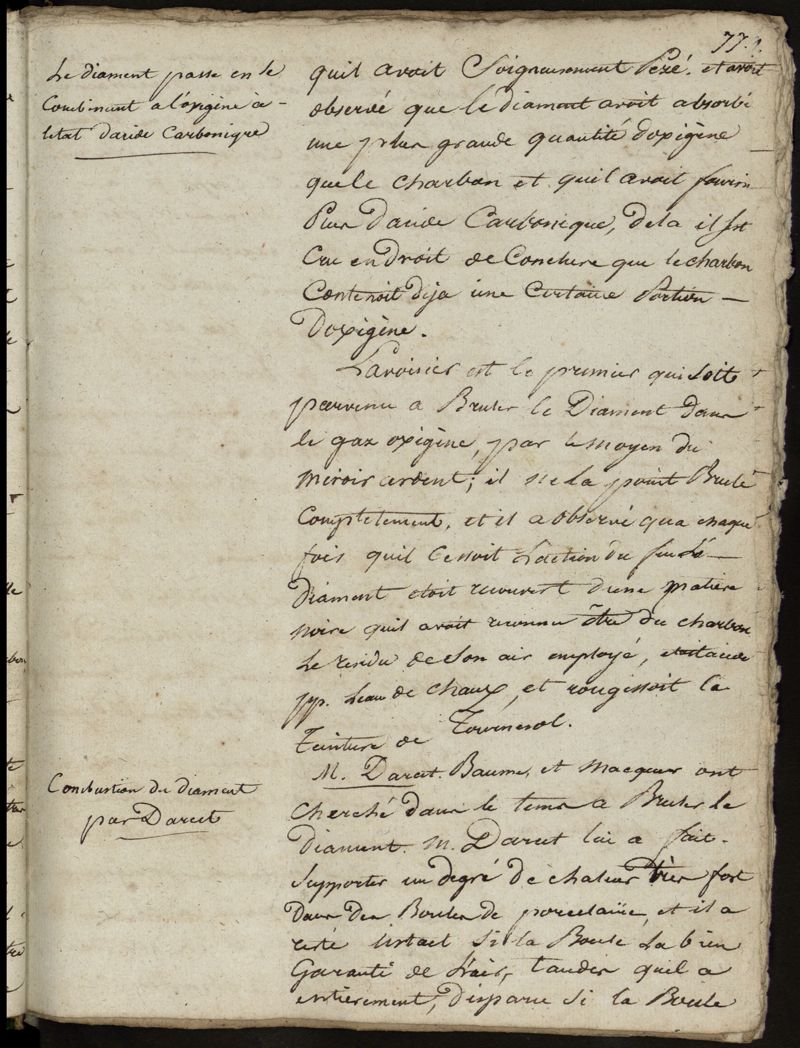 77.
Le diament passe en se
Combinant a l'oxigène à -
letat dacide Carbonique
quil avoit Soigneusement Pezé. et avoit
observé que le diamant avoit absorbé
une plus grande quantité doxigène
que le charbon et quil avoit fourni
Plus Dacide Carbonique, de la il est
Cru en Droit de Conclure que le charbon
Contenoit Dija une Certaine Portion -
Doxigène.
Lavoisier est le premier qui soit
parvenu a Bruler le Diament dans
le gaz oxigène, par le moyen du
miroir ardent; il ne la point Brulé
Completement, et il a observé qua chaque
fois quil Cessoit L'action du feu Le
Diament etoit recouvert dune matiere
noire quil avoit reconnu être du charbon
Le residu de Son air employé,
pp. Leau de chaux, et rougissoit la
Teinture de Tournesol.
Combustion du diament
par Darcet
M. Darcet. Baume, et Macquer ont
Cherché dans le tems a Bruler le
Diament. M. Darcet lui a fait -
Supporter un degré de chaleur très fort
Dans des Boules de porcelaine, et il a
resté intact Si la Boule La bien
Garanti de L'air, tandis quil a
entièrement, disparu si la Boule